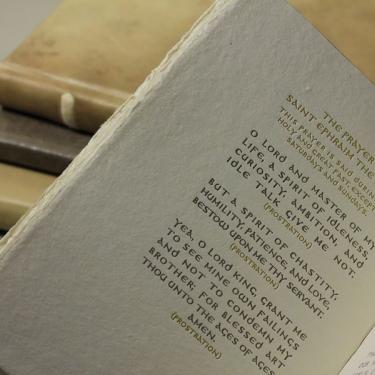 THE PRAYER
SAINT EPHRAIM THE
THIS PRAYER IS SAID DURING
HOLY AND GREAT LENT, EXCEPT
SATURDAYS AND SUNDAYS.
O LORD AND MASTER OF MY
LIFE, A SPIRIT OF IDLENESS,
CURIOSITY, AMBITION, AND
IDLE TALK GIVE ME NOT.
(PROSTRATION)
BUT A SPIRIT OF CHASTITY,
HUMILITY, PATIENCE, AND LOVE,
BESTOW UPON ME, THY SERVANT.
(PROSTRATION)
YEA, O LORD KING, GRANT ME
TO SEE MINE OWN FAILINGS
AND NOT TO CONDEMN MY
BROTHER; FOR BLESSED ART
THOU UNTO THE AGES OF AGES
AMEN.
(PROSTRATION)